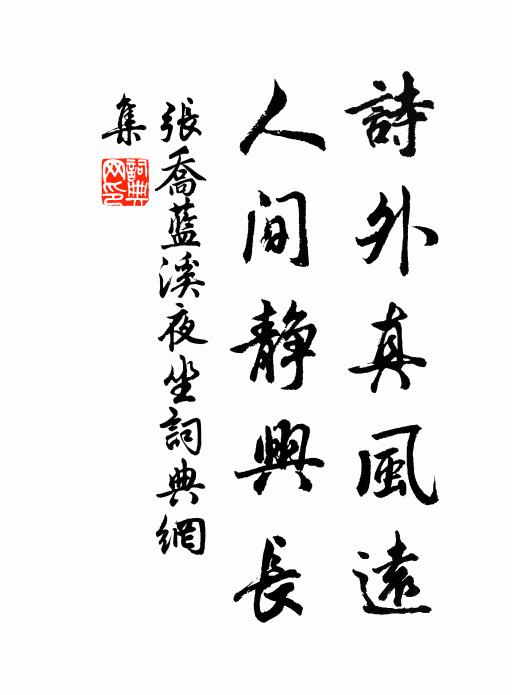 詩外真風遠
人间静興長
張喬藍溪夜坐詞典網
集
詞典
网印